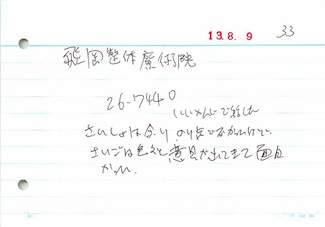 13.8.9 33
飛岡整体療術院
26-7440
さいしょは余り のり気でなかったけど、
さいごは色々と意見が出てきて面白
かった。